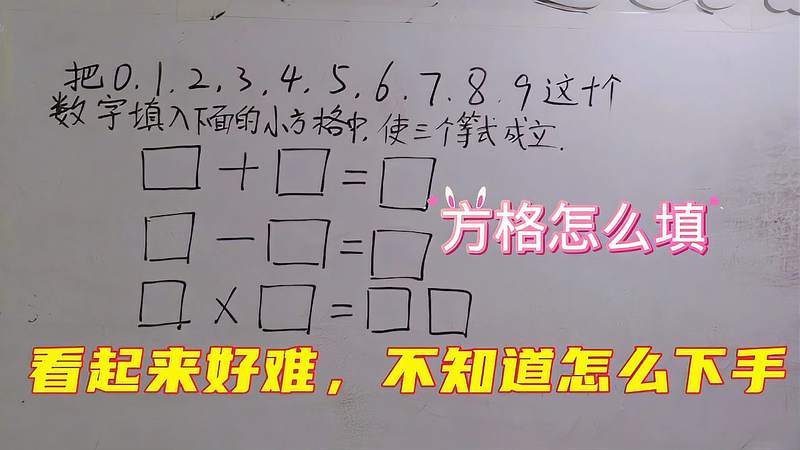 把0.1.2.3.4.5.6.7.8.9这十个
数字填入下面的小方格中,使三个等式成立.
□+□=□
□-□=□
方格怎么填
□×□=□□
看起来好难，不知道怎么下手